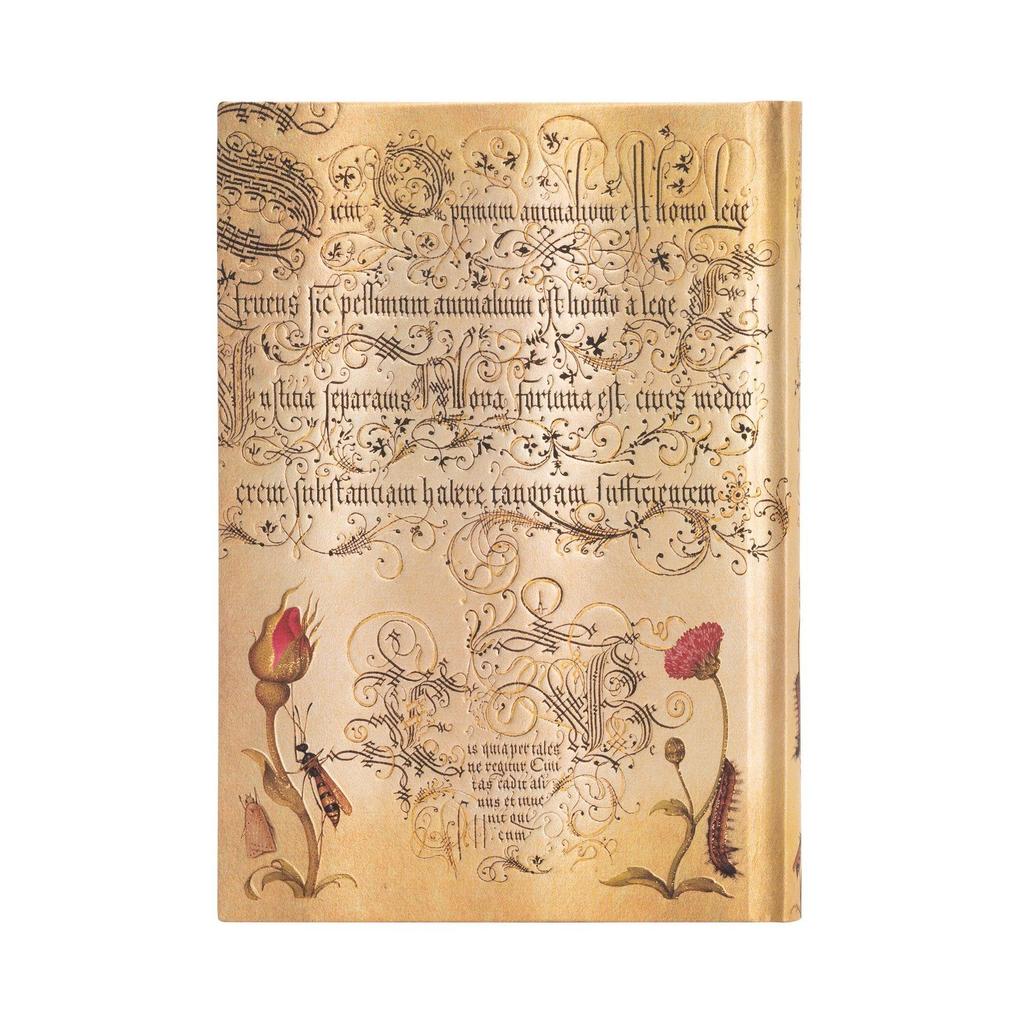 Sicut Optimum animalium est homo lege
fruens sic pessimum animalium est homo a lege Et
Iustitia separatus Nova fortuna est, cives medio
crem substantiam habere tanqvam sufficientem
is quia per tales
ne regitur Civi
tas cadit asi
nus et inve
nit qui
eum